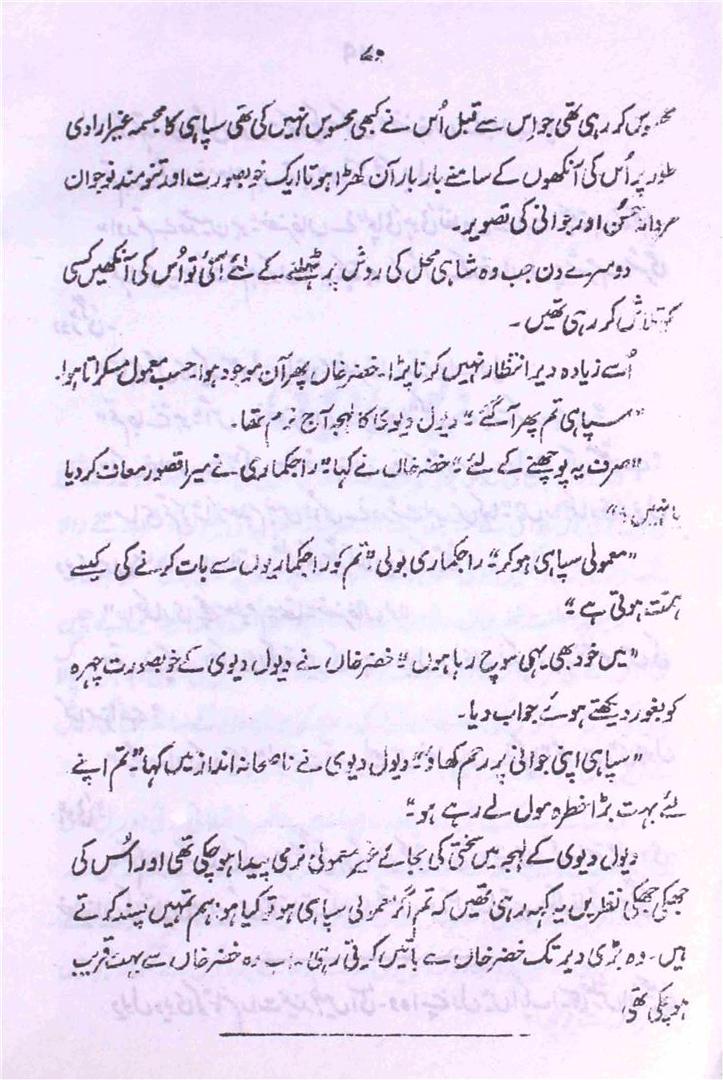 ۷۰
محسوس کر رہی تھی جو اِس سے قبل اُس نے کبھی محسوس نہیں کی تھی سپاہی کا مجسمہ غیر ارادی
طور پر اُس کی آنکھوں کے سامنے بار بار آن کھڑا ہوتا ایک خوبصورت اور تنومند نوجوان
مردانہ حُسن اور جوانی کی تصویر۔
دوسرے دن جب وہ شاہی محل کی روش پر ٹہلنے کے لئے آئی تو اُس کی آنکھیں کسی
کو تلاش کر رہی تھیں۔
اُسے زیادہ دیر انتظار نہیں کرنا پڑا۔ خضر خاں پھر آن موجود ہوا۔ حسب معمول مسکراتا ہوا۔
"سپاہی تم پھر آ گئے" دیول دیوی کا لہجہ آج نرم تھا۔
"صرف یہ پوچھنے کے لئے" خضر خاں نے کہا "راجکماری نے میرا قصور معاف کر دیا
یا نہیں؟"
"معمولی سپاہی ہو کر" راجکماری بولی "تم کو راجکماریوں سے بات کرنے کی کیسے
ہمت ہوتی ہے"
"میں خود بھی یہی سوچ رہا ہوں" خضر خاں نے دیول دیوی کے خوبصورت چہرہ
کو بغور دیکھتے ہوئے جواب دیا۔
"سپاہی اپنی جوانی پر رحم کھاؤ" دیول دیوی نے ناصحانہ انداز میں کہا "تم اپنے
لئے بہت بڑا خطرہ مول لے رہے ہو"
دیول دیوی کے لہجہ میں سختی کی بجائے غیر معمولی نرمی پیدا ہو چکی تھی اور اُس کی
جھکی جھکی نظریں یہ کہہ رہی تھیں کہ تم اگر معمولی سپاہی ہو تو کیا ہو ہم تمہیں پسند کرتے
ہیں۔ وہ بڑی دیر تک خضر خاں سے باتیں کرتی رہی۔ اب وہ خضر خاں سے بہت قریب
ہو چکی تھی۔